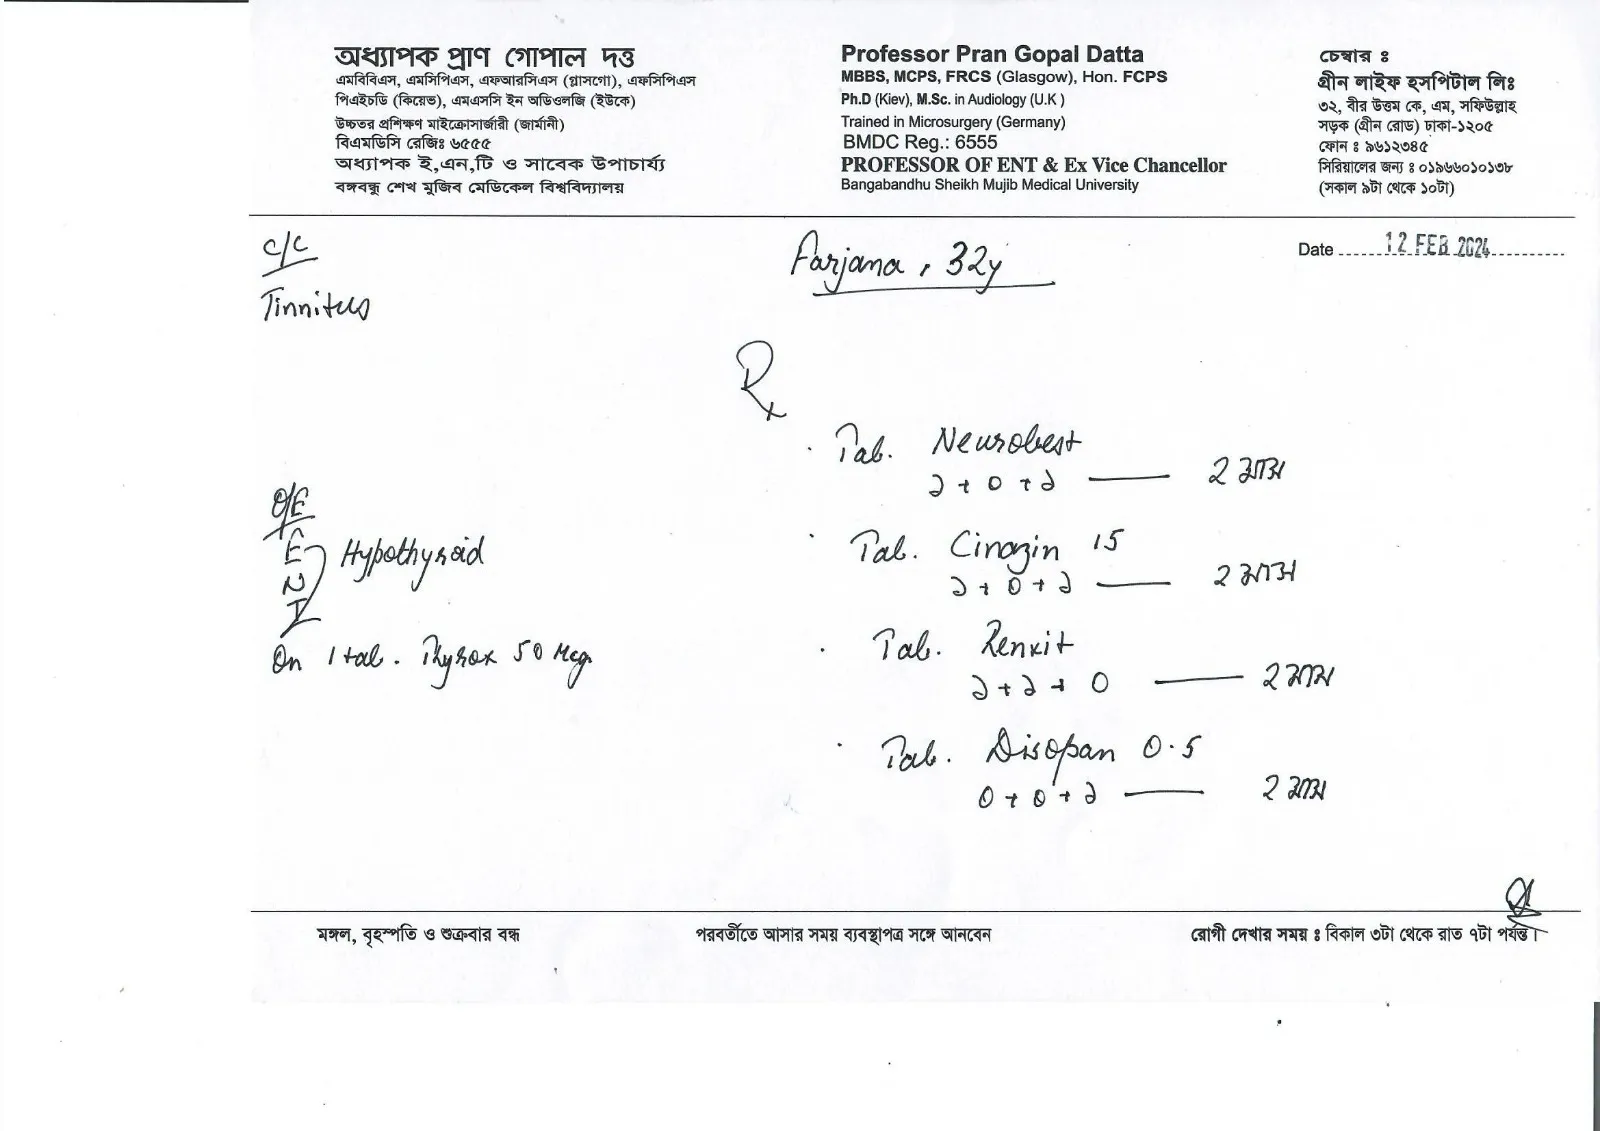 অধ্যাপক প্রাণ গোপাল দত্ত
এমবিবিএস, এমসিপিএস, এফআরসিএস (গ্লাসগো), এফসিপিএস
পিএইচডি (কিয়েভ), এমএসসি ইন অডিওলজি (ইউকে)
উচ্চতর প্রশিক্ষণ মাইক্রোসার্জারী (জার্মানী)
বিএমডিসি রেজিঃ ৬৫৫৫
অধ্যাপক ই,এন,টি ও সাবেক উপাচার্য্য
বঙ্গবন্ধু শেখ মুজিব মেডিকেল বিশ্ববিদ্যালয়
Professor Pran Gopal Datta
MBBS, MCPS, FRCS (Glasgow), Hon. FCPS
Ph.D (Kiev), M.Sc. in Audiology (U.K )
Trained in Microsurgery (Germany)
BMDC Reg.: 6555
PROFESSOR OF ENT & Ex Vice Chancellor
Bangabandhu Sheikh Mujib Medical University
চেম্বার ঃ
গ্রীন লাইফ হসপিটাল লিঃ
৩২, বীর উত্তম কে, এম, সফিউল্লাহ
সড়ক (গ্রীন রোড) ঢাকা-১২০৫
ফোন ঃ ৯৬১২৩৪৫
সিরিয়ালের জন্য ঃ ০১৯৬৬০১০১৩৮
(সকাল ৯টা থেকে ১০টা)
Date 12 FEB 2024
Farjana, 32y
C/C
Tinnitus
O/E
E
N
T
Hypothyroid
On 1 tab. Thyrox 50 Mcg
Rx
Tab. Neurobest
১ + ০ + ১ — ২ মাস
Tab. Cinazin 15
১ + ০ + ১ — ২ মাস
Tab. Renxit
১ + ১ + ০ — ২ মাস
Tab. Disopan 0.5
০ + ০ + ১ — ২ মাস
মঙ্গল, বৃহস্পতি ও শুক্রবার বন্ধ
পরবর্তীতে আসার সময় ব্যবস্থাপত্র সঙ্গে আনবেন
রোগী দেখার সময় ঃ বিকাল ৩টা থেকে রাত ৭টা পর্যন্ত।